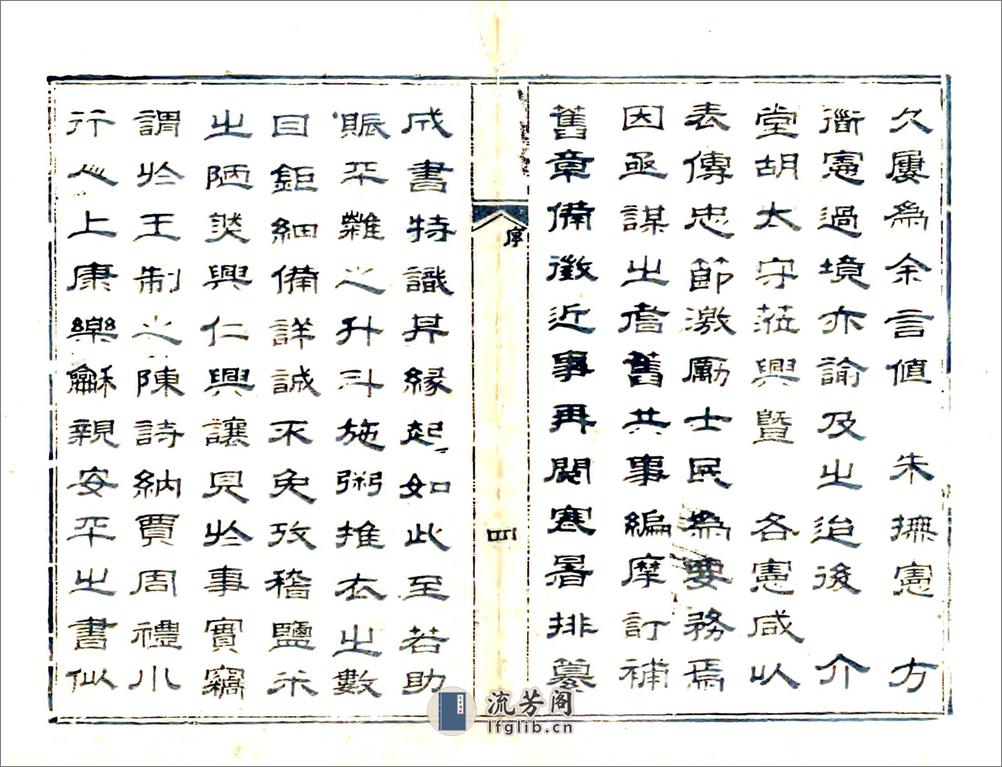 久屢為余言值 朱撫憲 方
衛憲過境亦諭及之迨後 介
堂胡太守蒞興暨 各憲咸以
表傳忠節激勵士民為要務焉
因亟謀之耆舊共事編摩訂補
舊章備徵近事再閱寒暑排纂
序
四
成書特識其緣起如此至若助
賑平糶之升斗施粥推衣之數
目鉅細備詳誠不免攷稽鹽米
之陋淡興仁興讓見於事實竊
謂於王制之陳詩納賈周禮小
行人上康樂龢親安平之書似
流芳阁
lfglib.cn